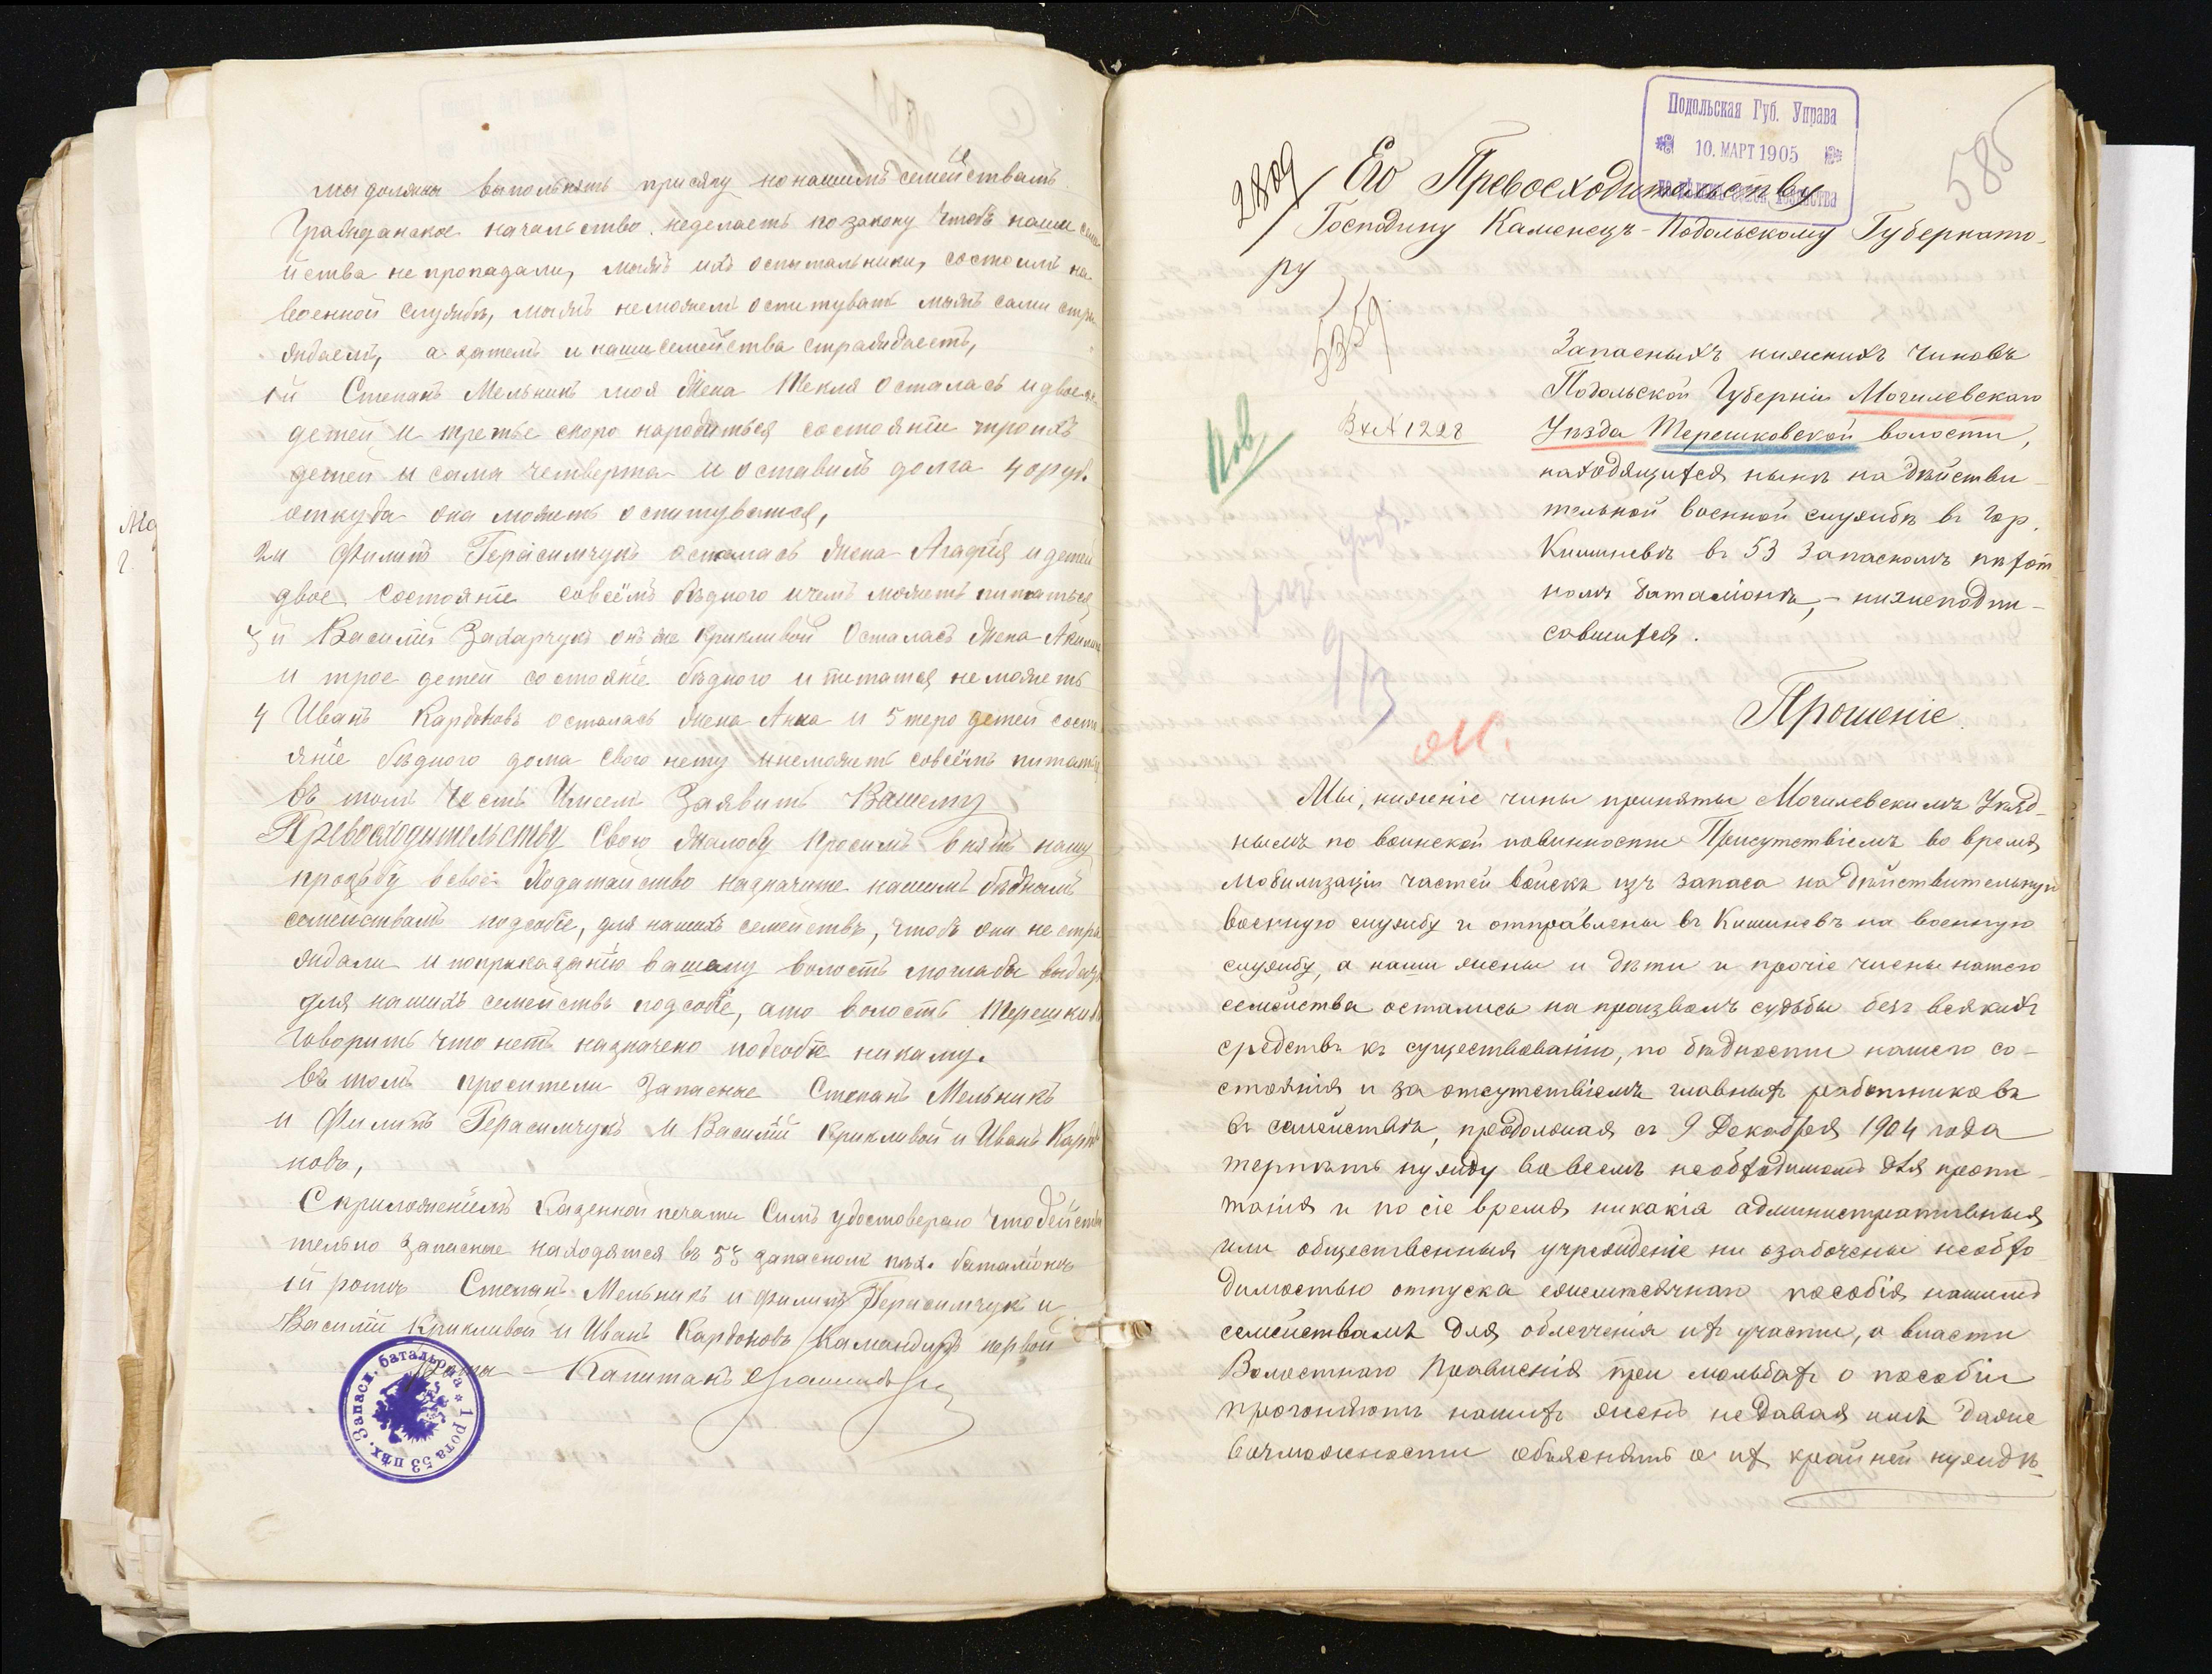 мы должны выпольнять присягу но нашимъ семействамъ
Гражданское начальство неделаеть по закону чтобъ наши сем
йства не пропадали, мыжъ ихъ оспытальники, состоимъ на
военной службѣ, мыжъ неможемъ оспитувать мыжъ сами стра
ждаемъ, а затемъ и наши семейства страждаеть,
1й Степанъ Мельникъ моя жена Текля осталась и двое
детей и третье скоро народиться состоянiи троихъ
детей и сама четверта и оставилъ долга 40 руб.
откуда она можетъ оспитуватся,
2й Филипъ Герасимчукъ осталась жена Агафiя и детей
двое состоянiе совсёмъ бѣдного и чемъ можетъ питаться
3й Василiй Захарчукъ онъ же Крикливой осталась жена
и трое детей состоянiе бѣдного и питатся не можеть
4 Иванъ Кардоновъ осталась жена Анна и 5теро детей состо
янiе бѣдного дома свого нету и неможеть совсёмъ питатся
Въ томъ честь Имеемъ Заявить Вашему
Превосходительству свою жалобу просимъ внять нашу
прозьбу в свое ходатайство назначите нашимъ бѣднымъ
семействамъ подсобiе, для нашихъ семействъ, чтобъ они не стра
ждали и поприказанiю вашему волость моглабы выдать
для нашихъ семействъ подсобiе, ато волость Терешки
говорить что нетъ назначено подсобiе никаму.
Въ томъ просители Запасные Степанъ Мельникъ
и Филипъ Герасимчукъ и Василiй Крикливой и Иванъ Кардо
новъ,
Скриложенiемъ Казенной печати Симъ удостоверяю что действи
тельно запасные находятся въ 53 запасномъ пѣх. баталiонѣ
1й ротѣ Степанъ Мельникъ и Филипъ Герасимчукъ и
Василiй Крикливой и Иванъ Кардоновъ Камандиръ первой
Роты Капитанъ
53 пѣх. Запасн. батальона * 1 рота
Подольская Губ. Управа
10. МАРТ 1905
585
2809
Его Превосходительству
Господину Каменецъ-Подольскому Губернато-
ру
5359
Вх № 1228
Запасныхъ нижнихъ чиновъ
Подольской Губернiи Могилевскаго
Уѣзда Терешковской волости,
находящихся нынѣ на дѣйстви-
тельной военной службѣ въ гор.
Кишиневѣ въ 53 Запасномъ пѣхот-
номъ баталiонѣ, - нижеподпи-
савшихся.
9/III
Прошенiе.
Мы, нижнiе чины приняты Могилевскимъ Уѣзд-
нымъ по воинской повинности Присутствiемъ во время
мобилизацiи частей войскъ изъ запаса на дѣйствительную
военную службу и отправлены въ Кишиневъ на военную
службу, а наши жены и дѣти и прочiе члены нашего
семейства остались на произволъ судьбы безъ всякихъ
средствъ къ существованiю, по бѣдности нашего со-
стоянiя и за отсутствiемъ главныхъ работниковъ
въ семействѣ, продолжая съ 9 Декабря 1904 года
терпѣть нужду во всемъ необходимомъ для пропи-
танiя и по сiе время никакiя административныя
или общественныя учрежденiе ни озабочены необхо-
димостью отпуска ежемѣсячнаго пособiя нашимъ
семействамъ для облегченiя ихъ участи, а власти
Волостного Правленiя при мольбахъ о пособiи
прогоняютъ нашихъ женъ не давая имъ даже
возможности объяснять о ихъ крайней нуждѣ